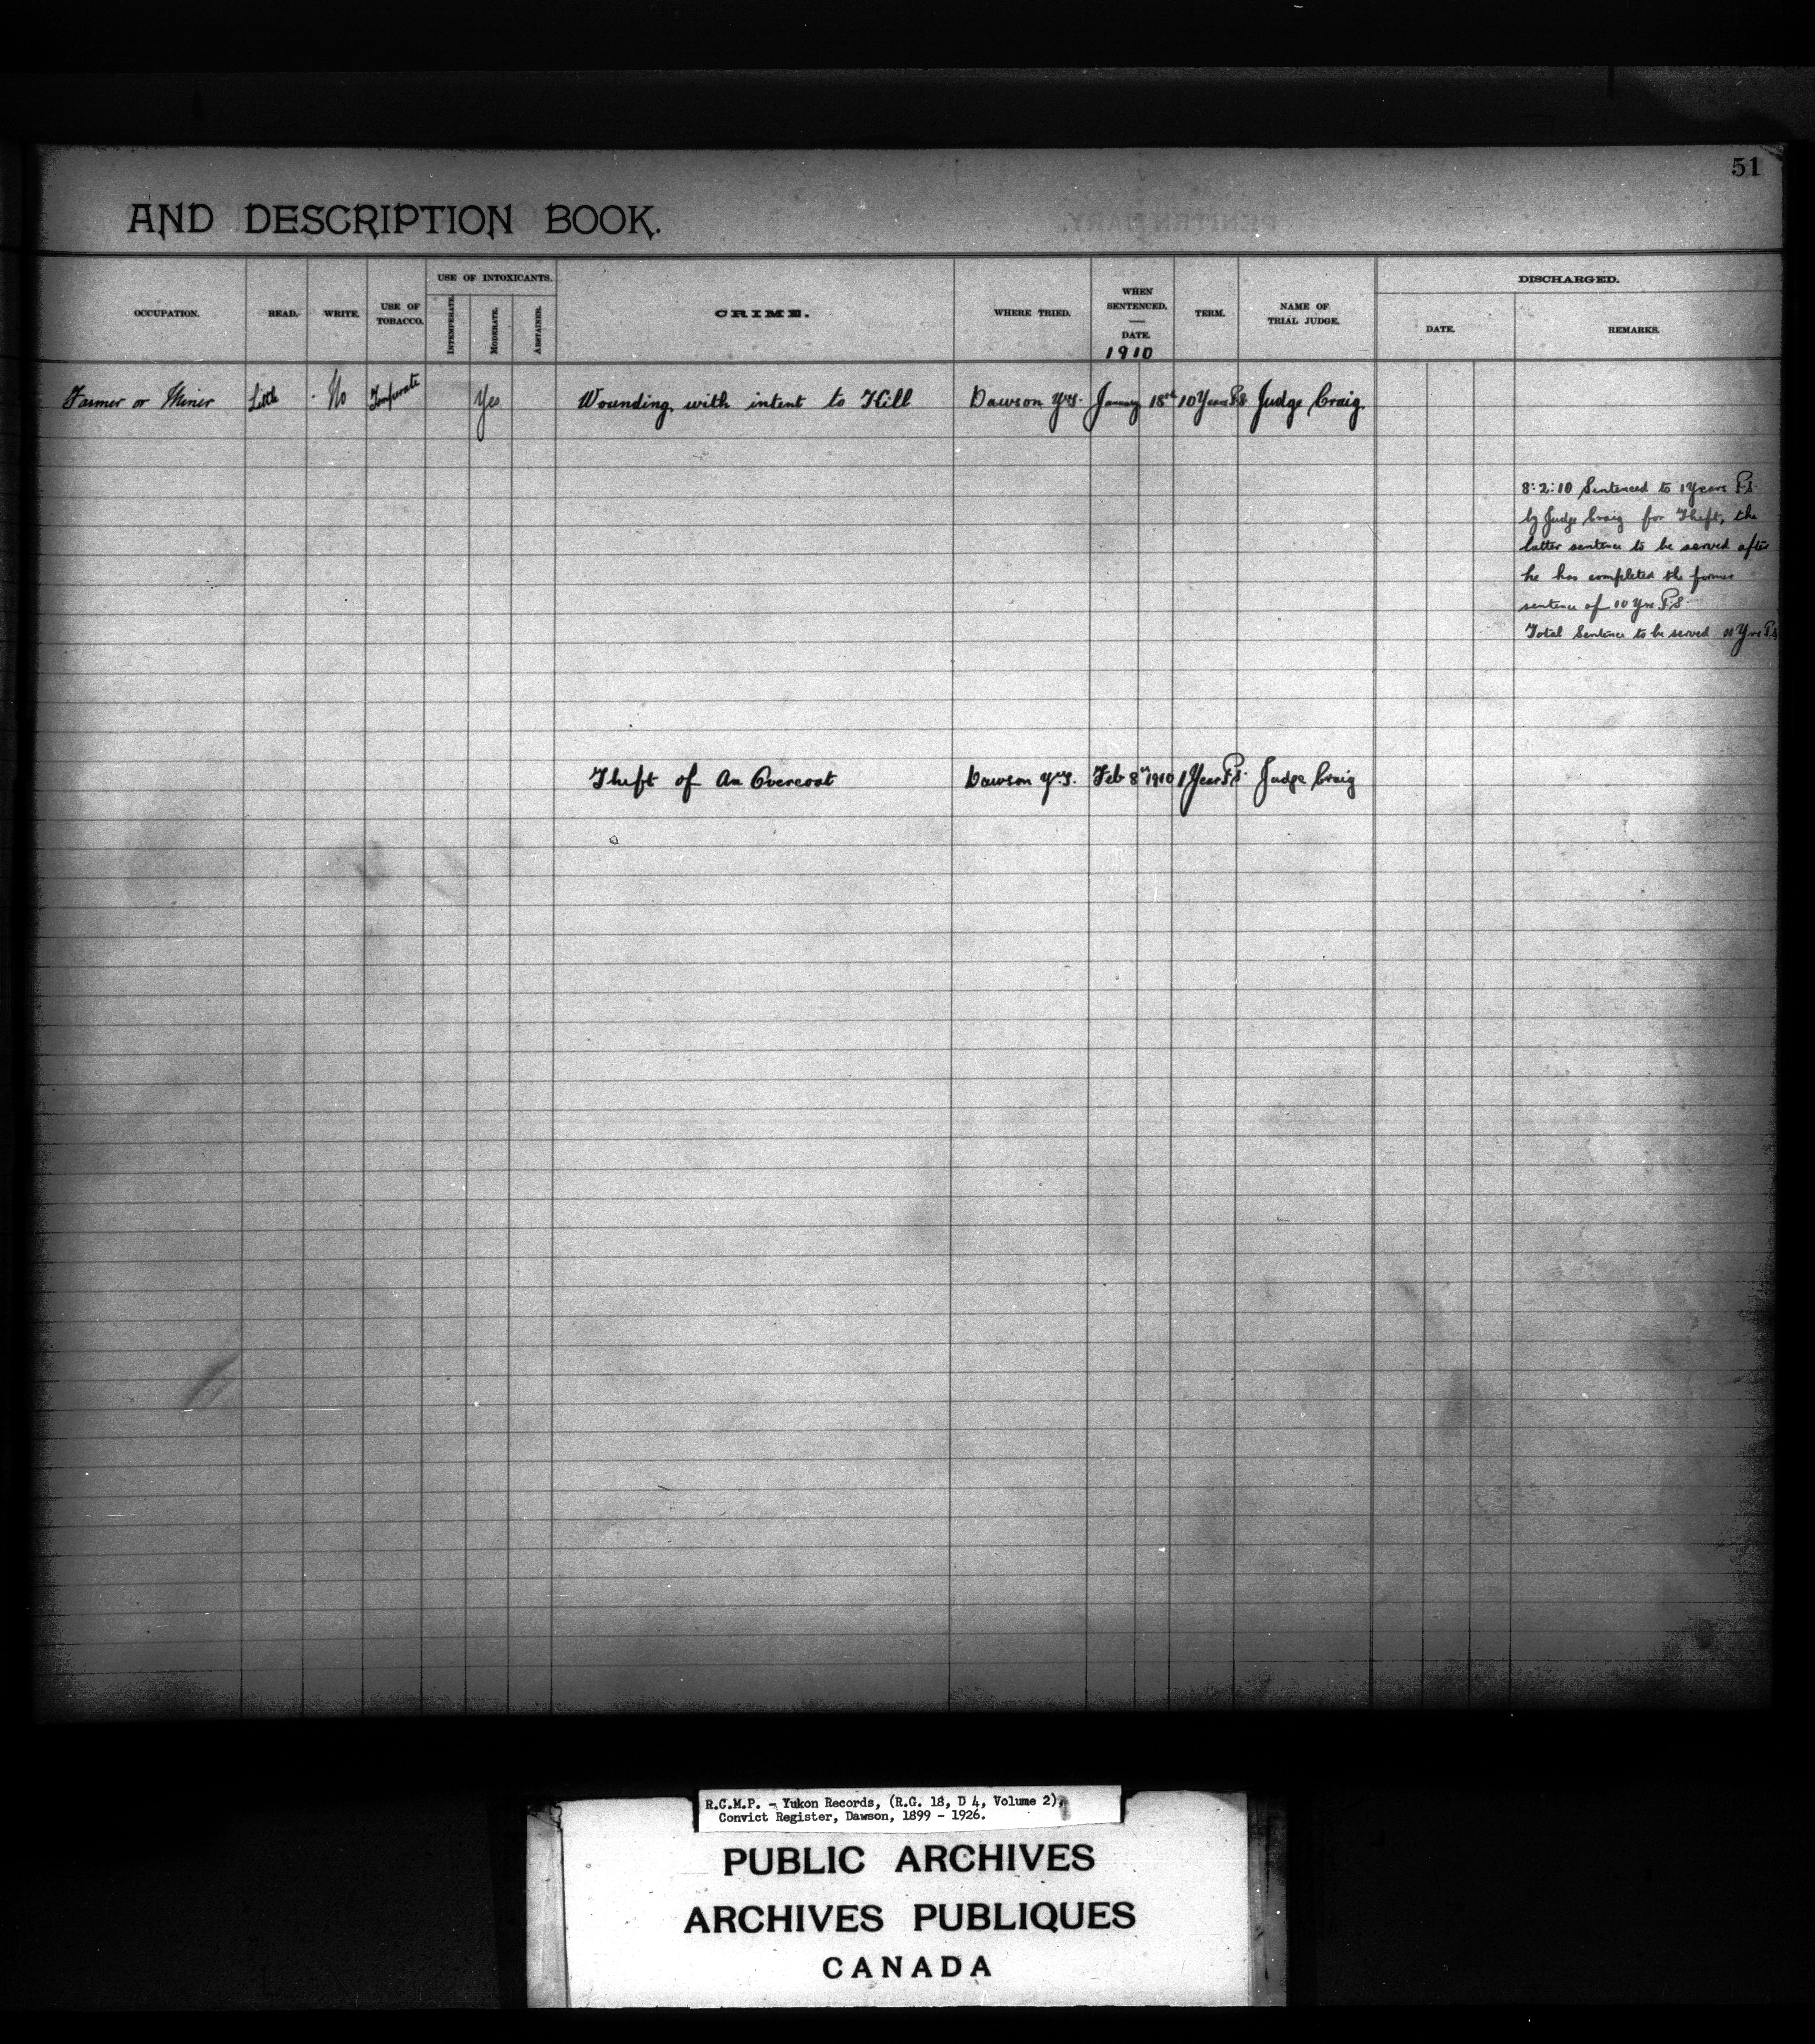 51
AND DESCRIPTION BOOK.
OCCUPATION.
READ.
WRITE.
USE OF
TOBACCO.
USE OF INTOXICANTS.
INTEMPERATE.
MODERATE.
ABSTAINER.
CRIME.
WHERE TRIED.
WHEN
SENTENCED.
DATE.
1910
TERM.
NAME OF
TRIAL JUDGE.
DISCHARGED.
DATE.
REMARKS.
Farmer or Miner Little No Temperate Yes Wounding with intent to Kill Dawson January 18th 10 Years P.S Judge Craig
8:2:10 Sentenced to 1 Years P.S.
by Judge Craig for Theft, the
latter sentence to be served after
he has completed the former
sentence of 10 Yrs P.S.
Total Sentence to be served 11 Yrs P.S
Theft of An Overcoat Dawson Feb 8th 1910 1 Year P.S. Judge Craig
R.C.M.P. - Yukon Records, (R.G. 18, D 4, Volume 2),
Convict Register, Dawson, 1899 - 1926.
PUBLIC ARCHIVES
ARCHIVES PUBLIQUES
CANADA